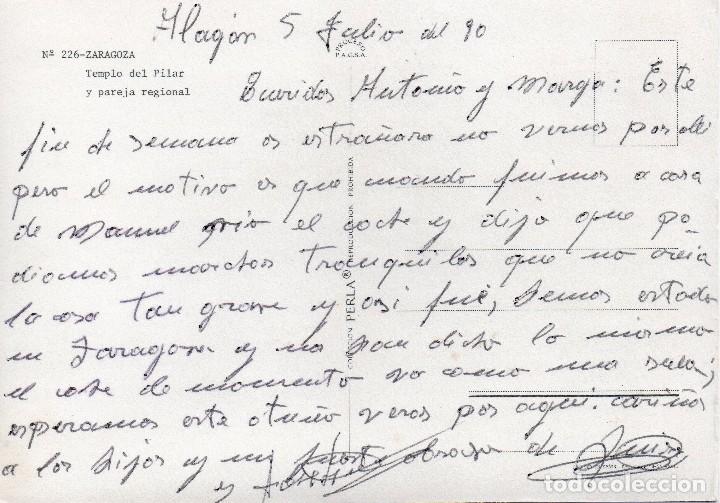 Alagón 5 Julio del 90
Nº 226-ZARAGOZA
Templo del Pilar
y pareja regional
PROCESO
P.A.G.S.A.
Queridos Antonio y Marga: Este
fin de semana os estrañara no vernos por alli
pero el motivo es que cuando fuimos a casa
de Manuel vio el coche y dijo que po-
diamos marchar tranquilos que no creia
la cosa tan grave y asi fué, hemos estado
en Zaragoza y nos han dicho lo mismo
el coche de momento va como una seda;
esperamos este otoño veros por aqui. cariños
a los hijos y un fuerte abrazo de
y
COLECCION PERLA® REPRODUCCION PROHIBIDA
todocoleccion